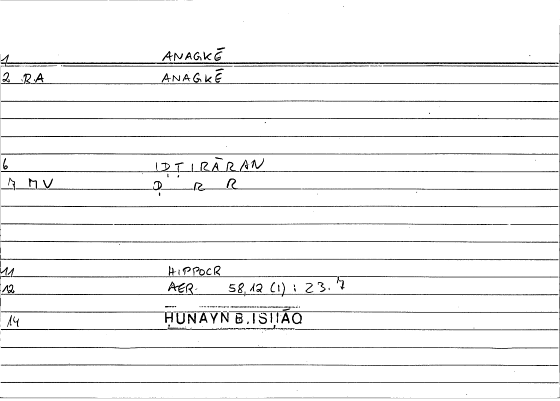 1 ANAGKĒ
2 RA ANAGKĒ
6 IḌṬIRĀRAN
7 MV Ḍ R R
11 HIPPOCR
12 AER. 58,12 (1) ; 23.7
14 ḤUNAYN B. ISḤĀQ